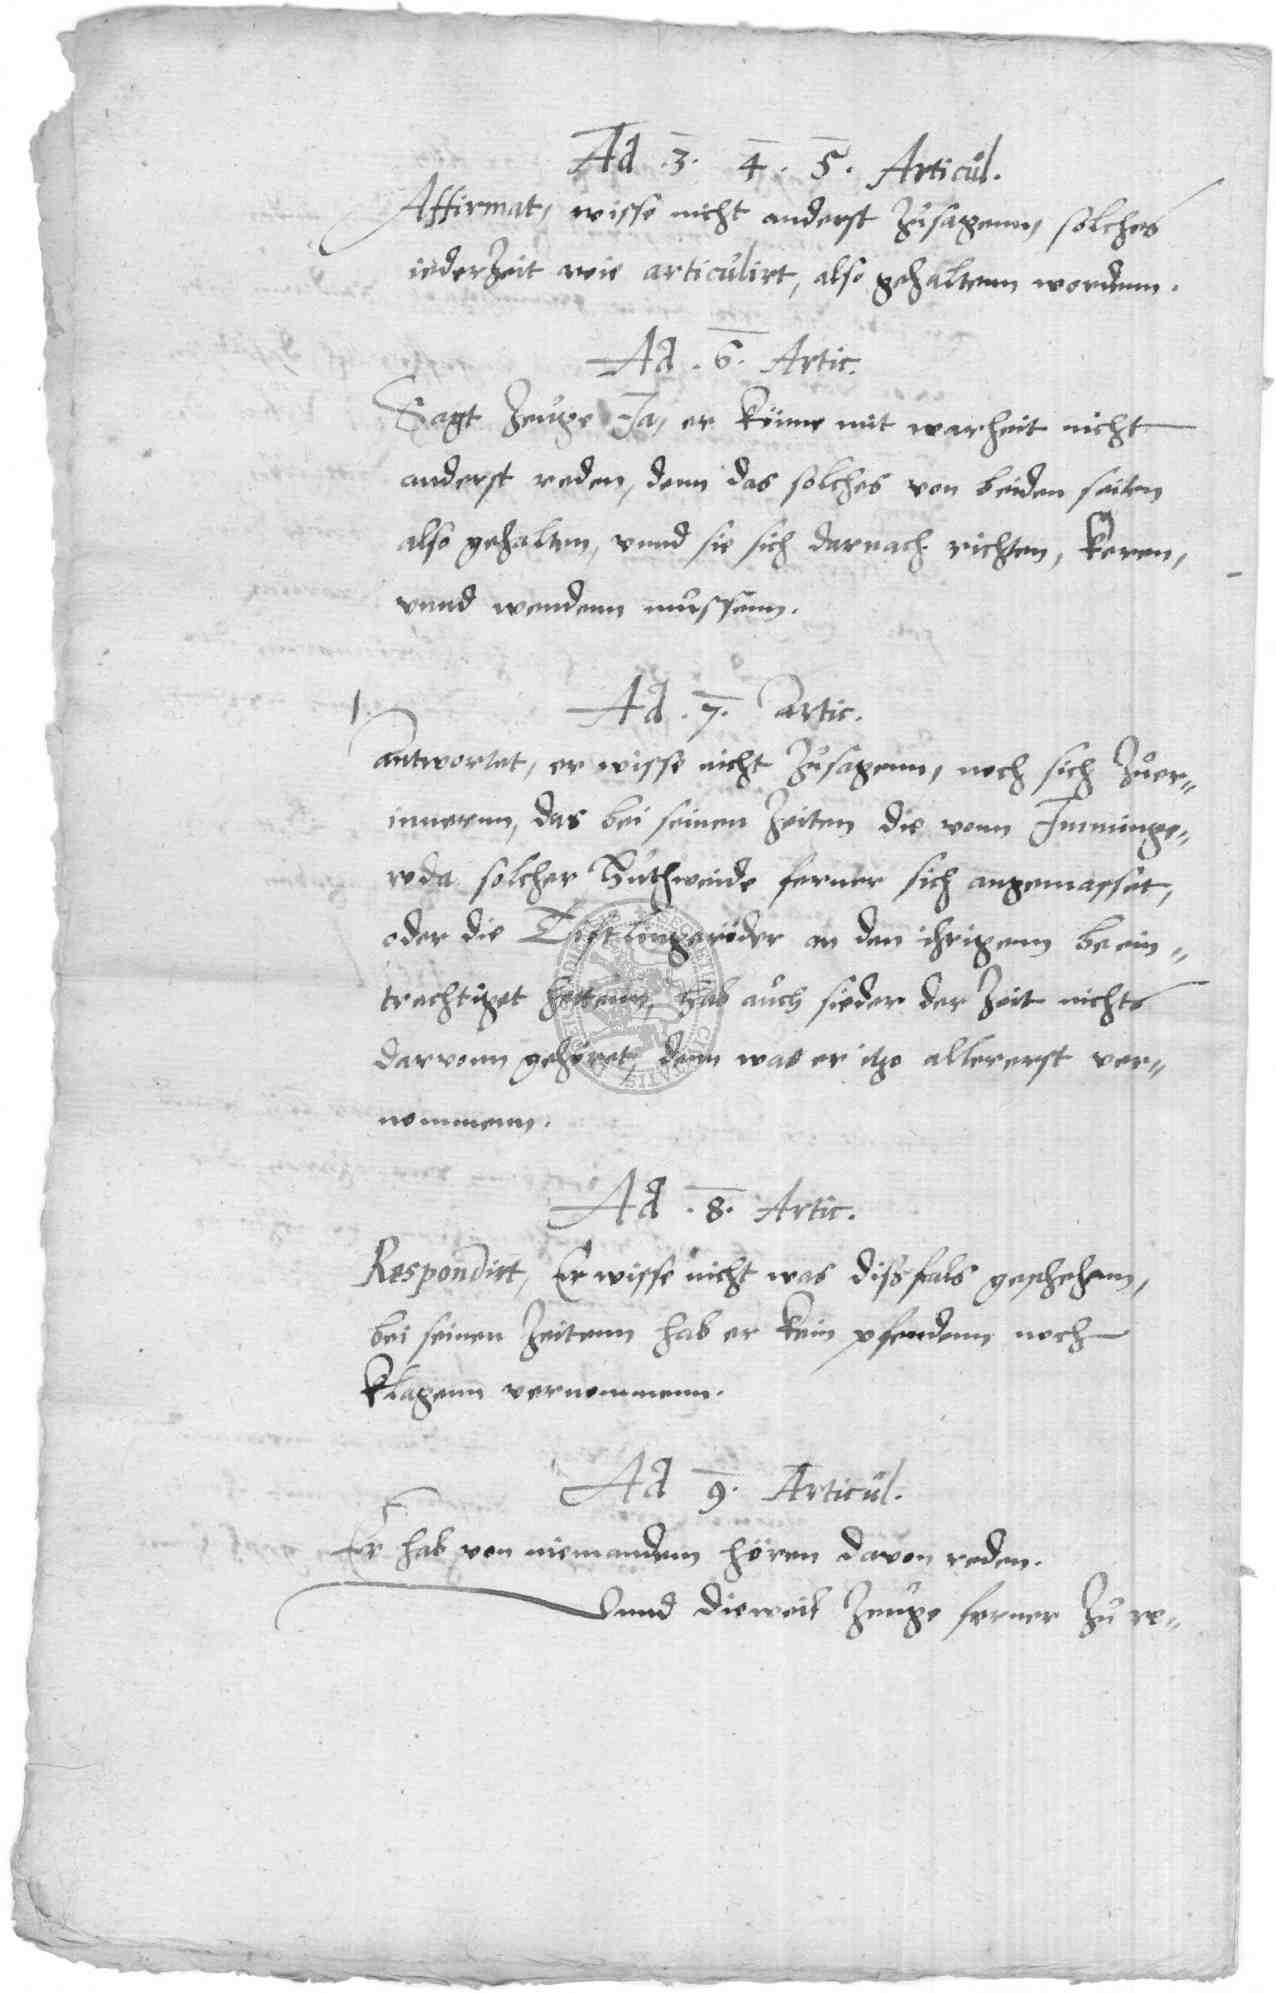 Ad .3. 4. 5. Articul.
Affirmat, wisse nicht anderst zusagenn, solches
iederzeit wie articulirt, also gehaltenn wordenn.
Ad .6. Artic.
Sagt Zeuge Ja, er könne mit warheit nicht
anderst reden, denn das solches von beiden seiten
also gehalten, vnnd sie sich darnach richten, keren,
vnnd wendenn mussenn.
Ad .7. Artic.
Antwortet, er wisse nicht zusagenn, noch sich zuer„
innerenn, das bei seinen Zeiten die vonn Imminge„
roda solcher Huthweide ferner sich angemasset,
oder die Tistlingeröder an den ihrigenn beein„
trechtiget hettenn, hab auch sieder der Zeit nichts
darvonn gehöret, denn was er itzo allererst ver„
nommenn.
Ad .8. Artic.
Respondirt, Er wisse nicht was dissfals geschehenn,
bei seinen Zeitenn hab er kein pfendenn noch
klagenn vernommenn.
Ad 9. Articul.
Er hab von niemandem hören davon reden.
Vnnd dieweil Zeuge ferner zu re„